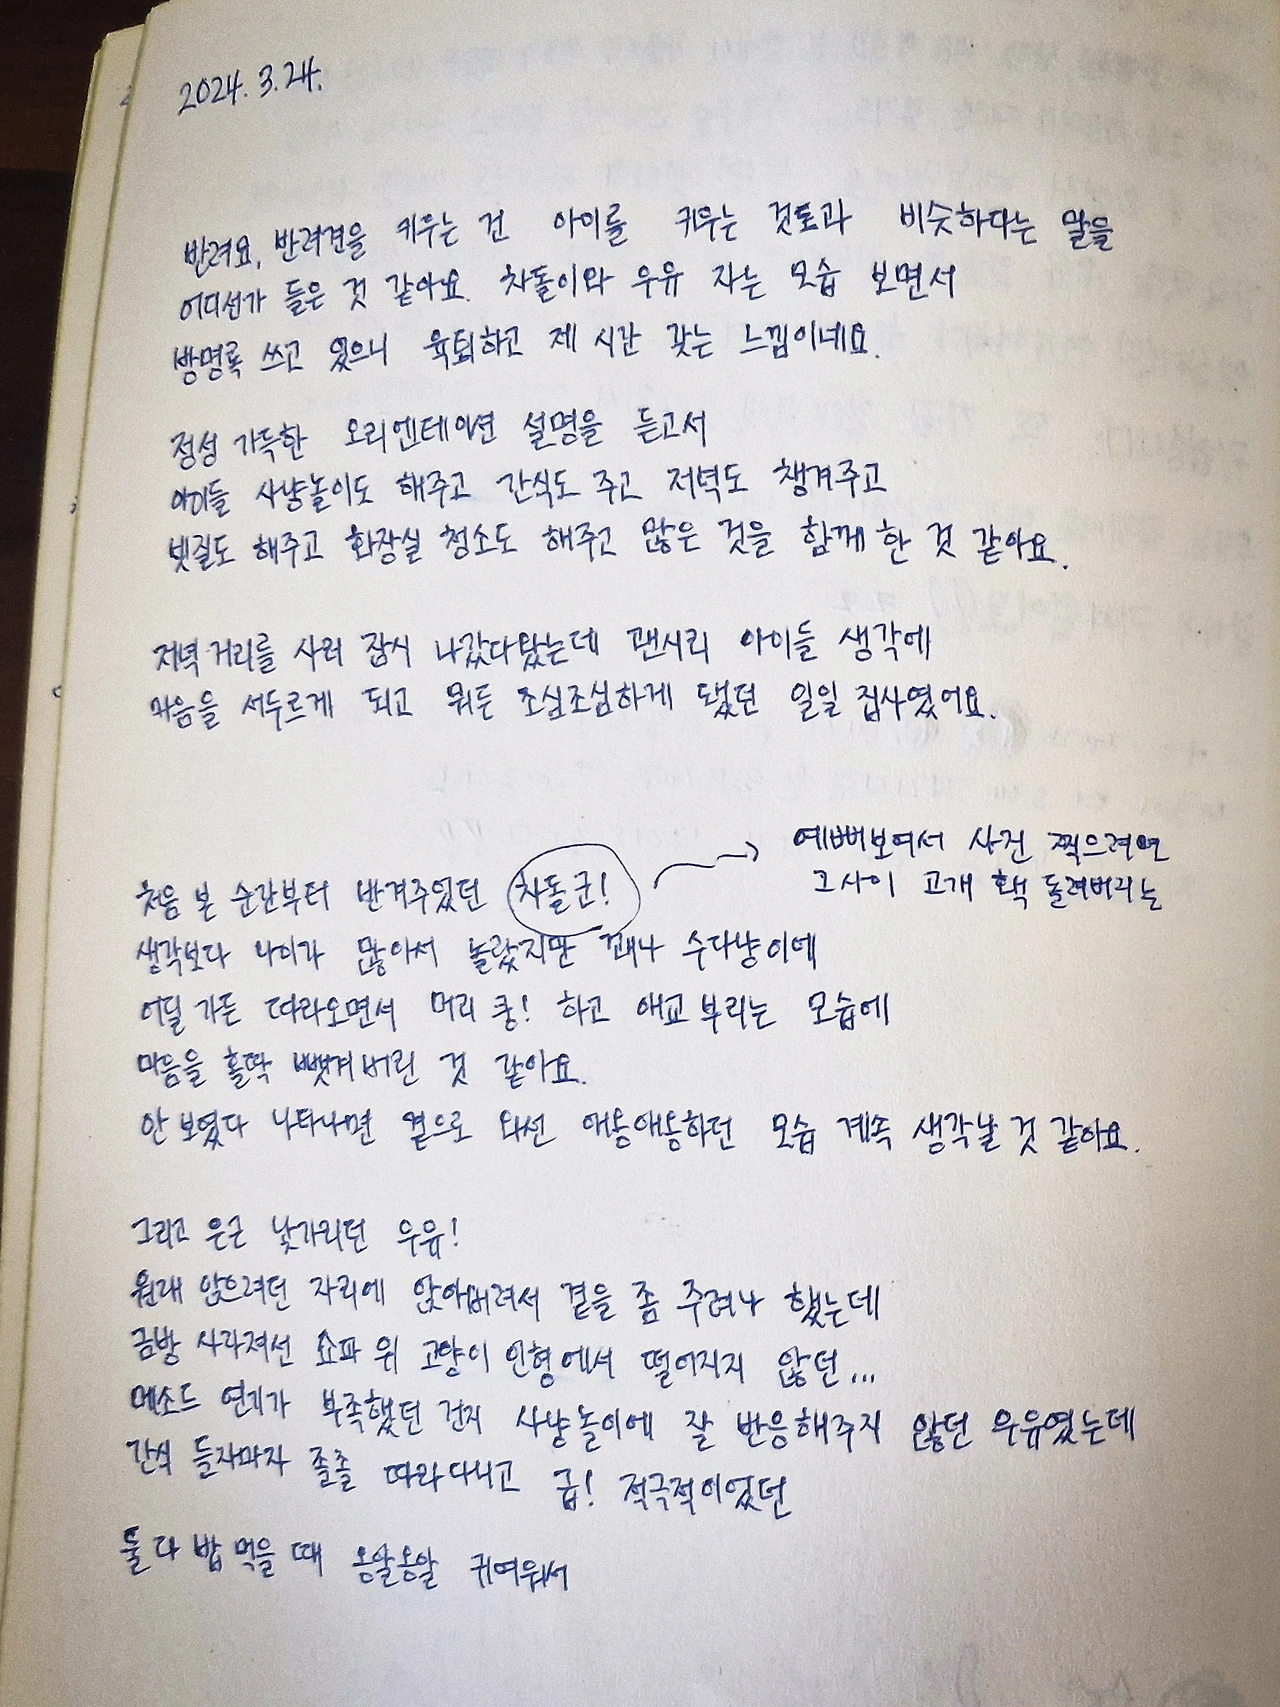 2024. 3. 24.
반려묘, 반려견을 키우는 건 아이를 키우는 것과 비슷하다는 말을
어디선가 들은 것 같아요. 차돌이와 우유 자는 모습 보면서
방명록 쓰고 있으니 육퇴하고 제 시간 갖는 느낌이네요.
정성 가득한 오리엔테이션 설명을 듣고서
아이들 사냥놀이도 해주고 간식도 주고 저녁도 챙겨주고
빗질도 해주고 화장실 청소도 해주고 많은 것을 함께 한 것 같아요.
저녁거리를 사러 잠시 나갔다왔는데 괜시리 아이들 생각에
마음을 서두르게 되고 뭐든 조심조심하게 됐던 일일 집사였어요.
처음 본 순간부터 반겨주었던 차돌군!
예뻐보여서 사진 찍으려면
그 사이 고개 홱 돌려버리는
생각보다 나이가 많아서 놀랐지만 꽤나 수다냥이에
어딜 가든 따라오면서 머리 쿵! 하고 애교 부리는 모습에
마음을 홀딱 뺏겨버린 것 같아요.
안 보였다 나타나면 곁으로 와선 애옹애옹하던 모습 계속 생각날 것 같아요.
그리고 은근 낯가리던 우유!
원래 앉으려던 자리에 앉아버려서 곁을 좀 주려나 했는데
금방 사라져선 쇼파 위 고양이 인형에서 떨어지지 않던...
메소드 연기가 부족했던 건지 사냥놀이에 잘 반응해주지 않던 우유였는데
간식 들자마자 졸졸 따라다니고 급! 적극적이었던
둘 다 밥 먹을 때 옹알옹알 귀여워서